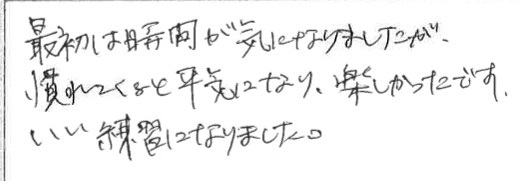 最初は時間が気になりましたが、
慣れてくると平気になり、楽しかったです。
いい練習になりました。